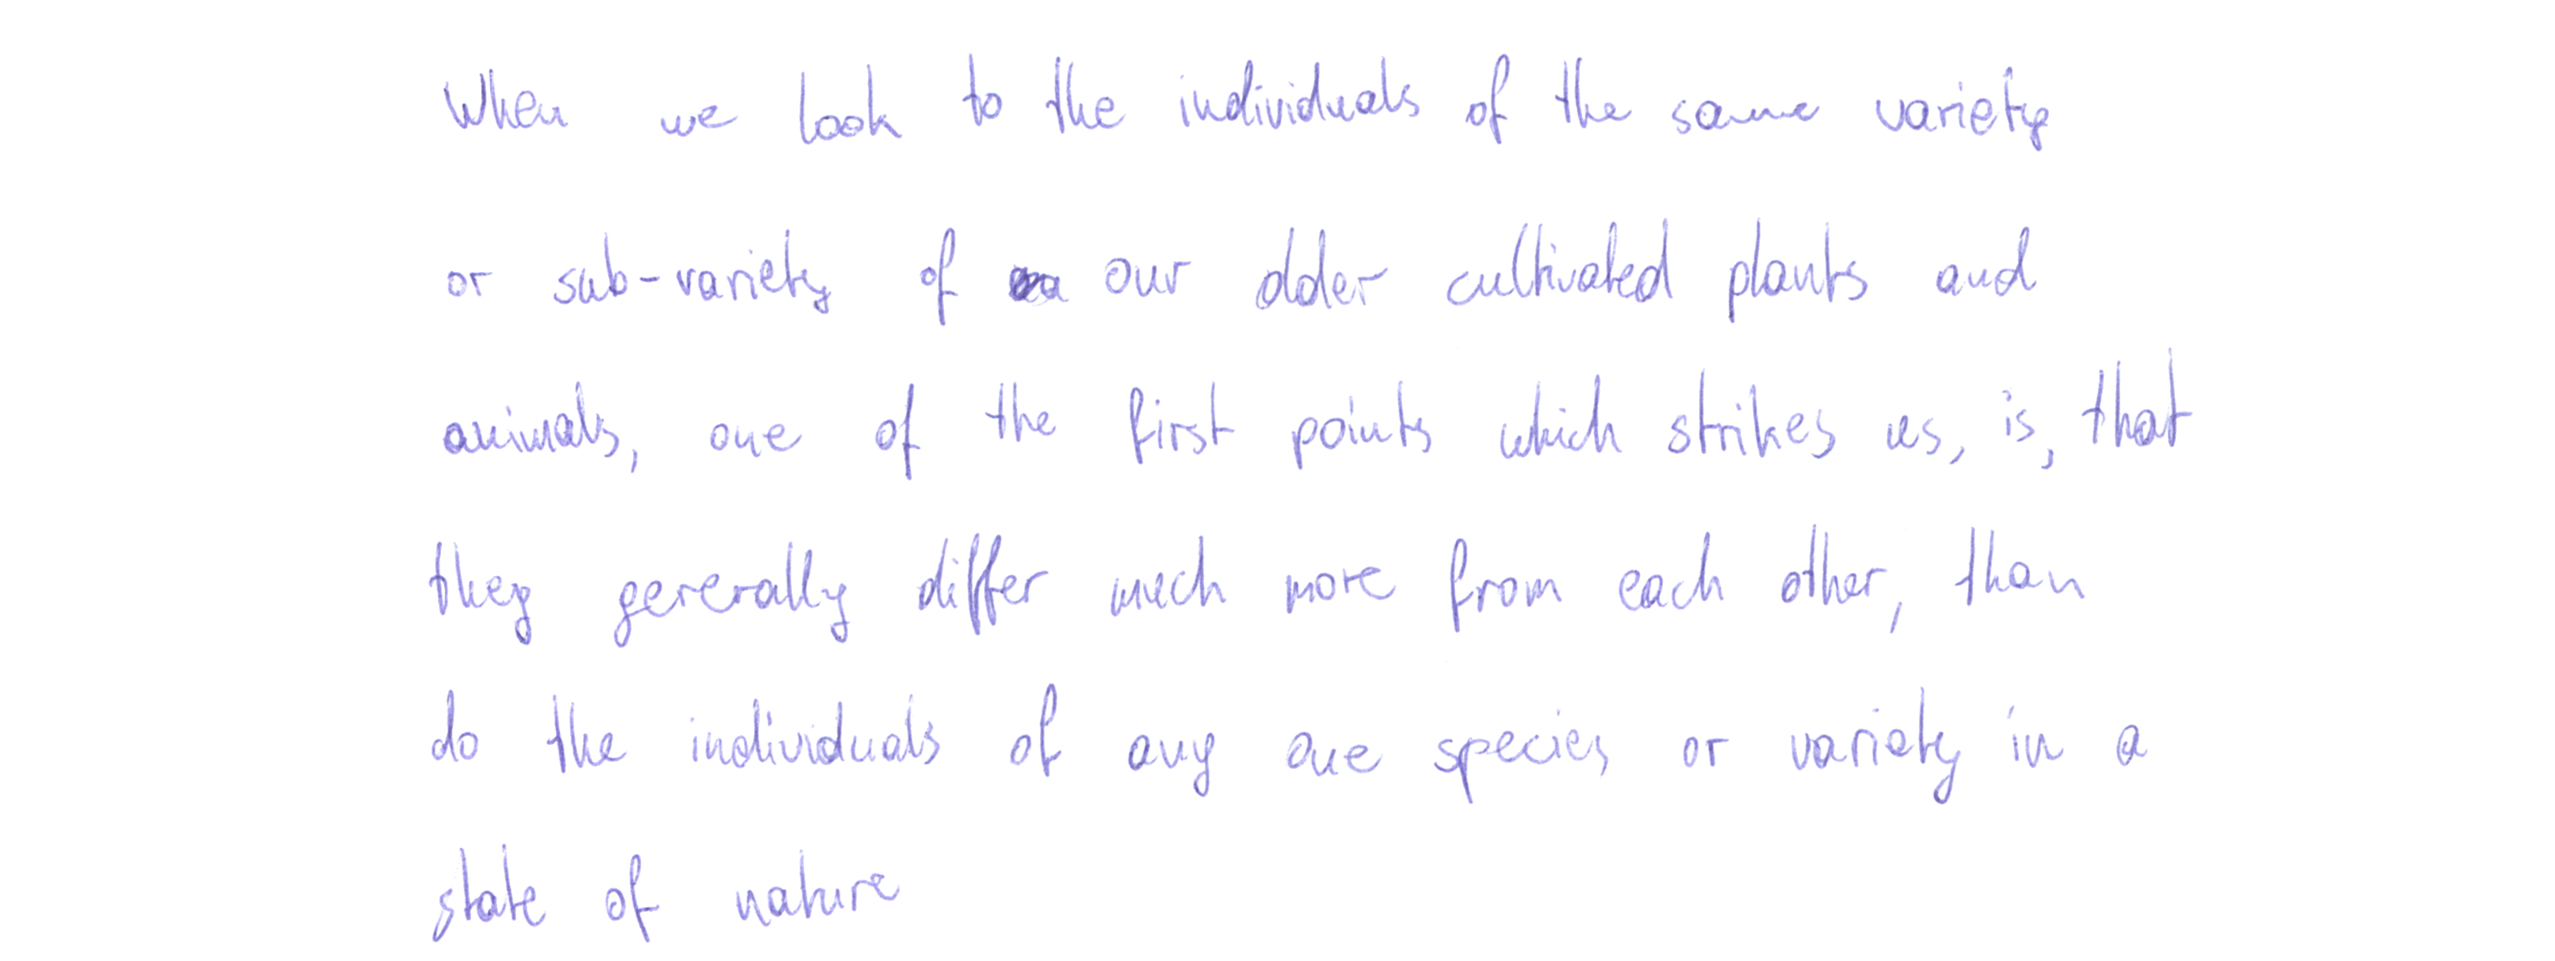 When we look to the individuals of the same variety
or sub-variety of our older cultivated plants and
animals, one of the first points which strikes us, is, that
they gererally differ much more from each other, than
do the individuals of any one species or variety in a
state of nature